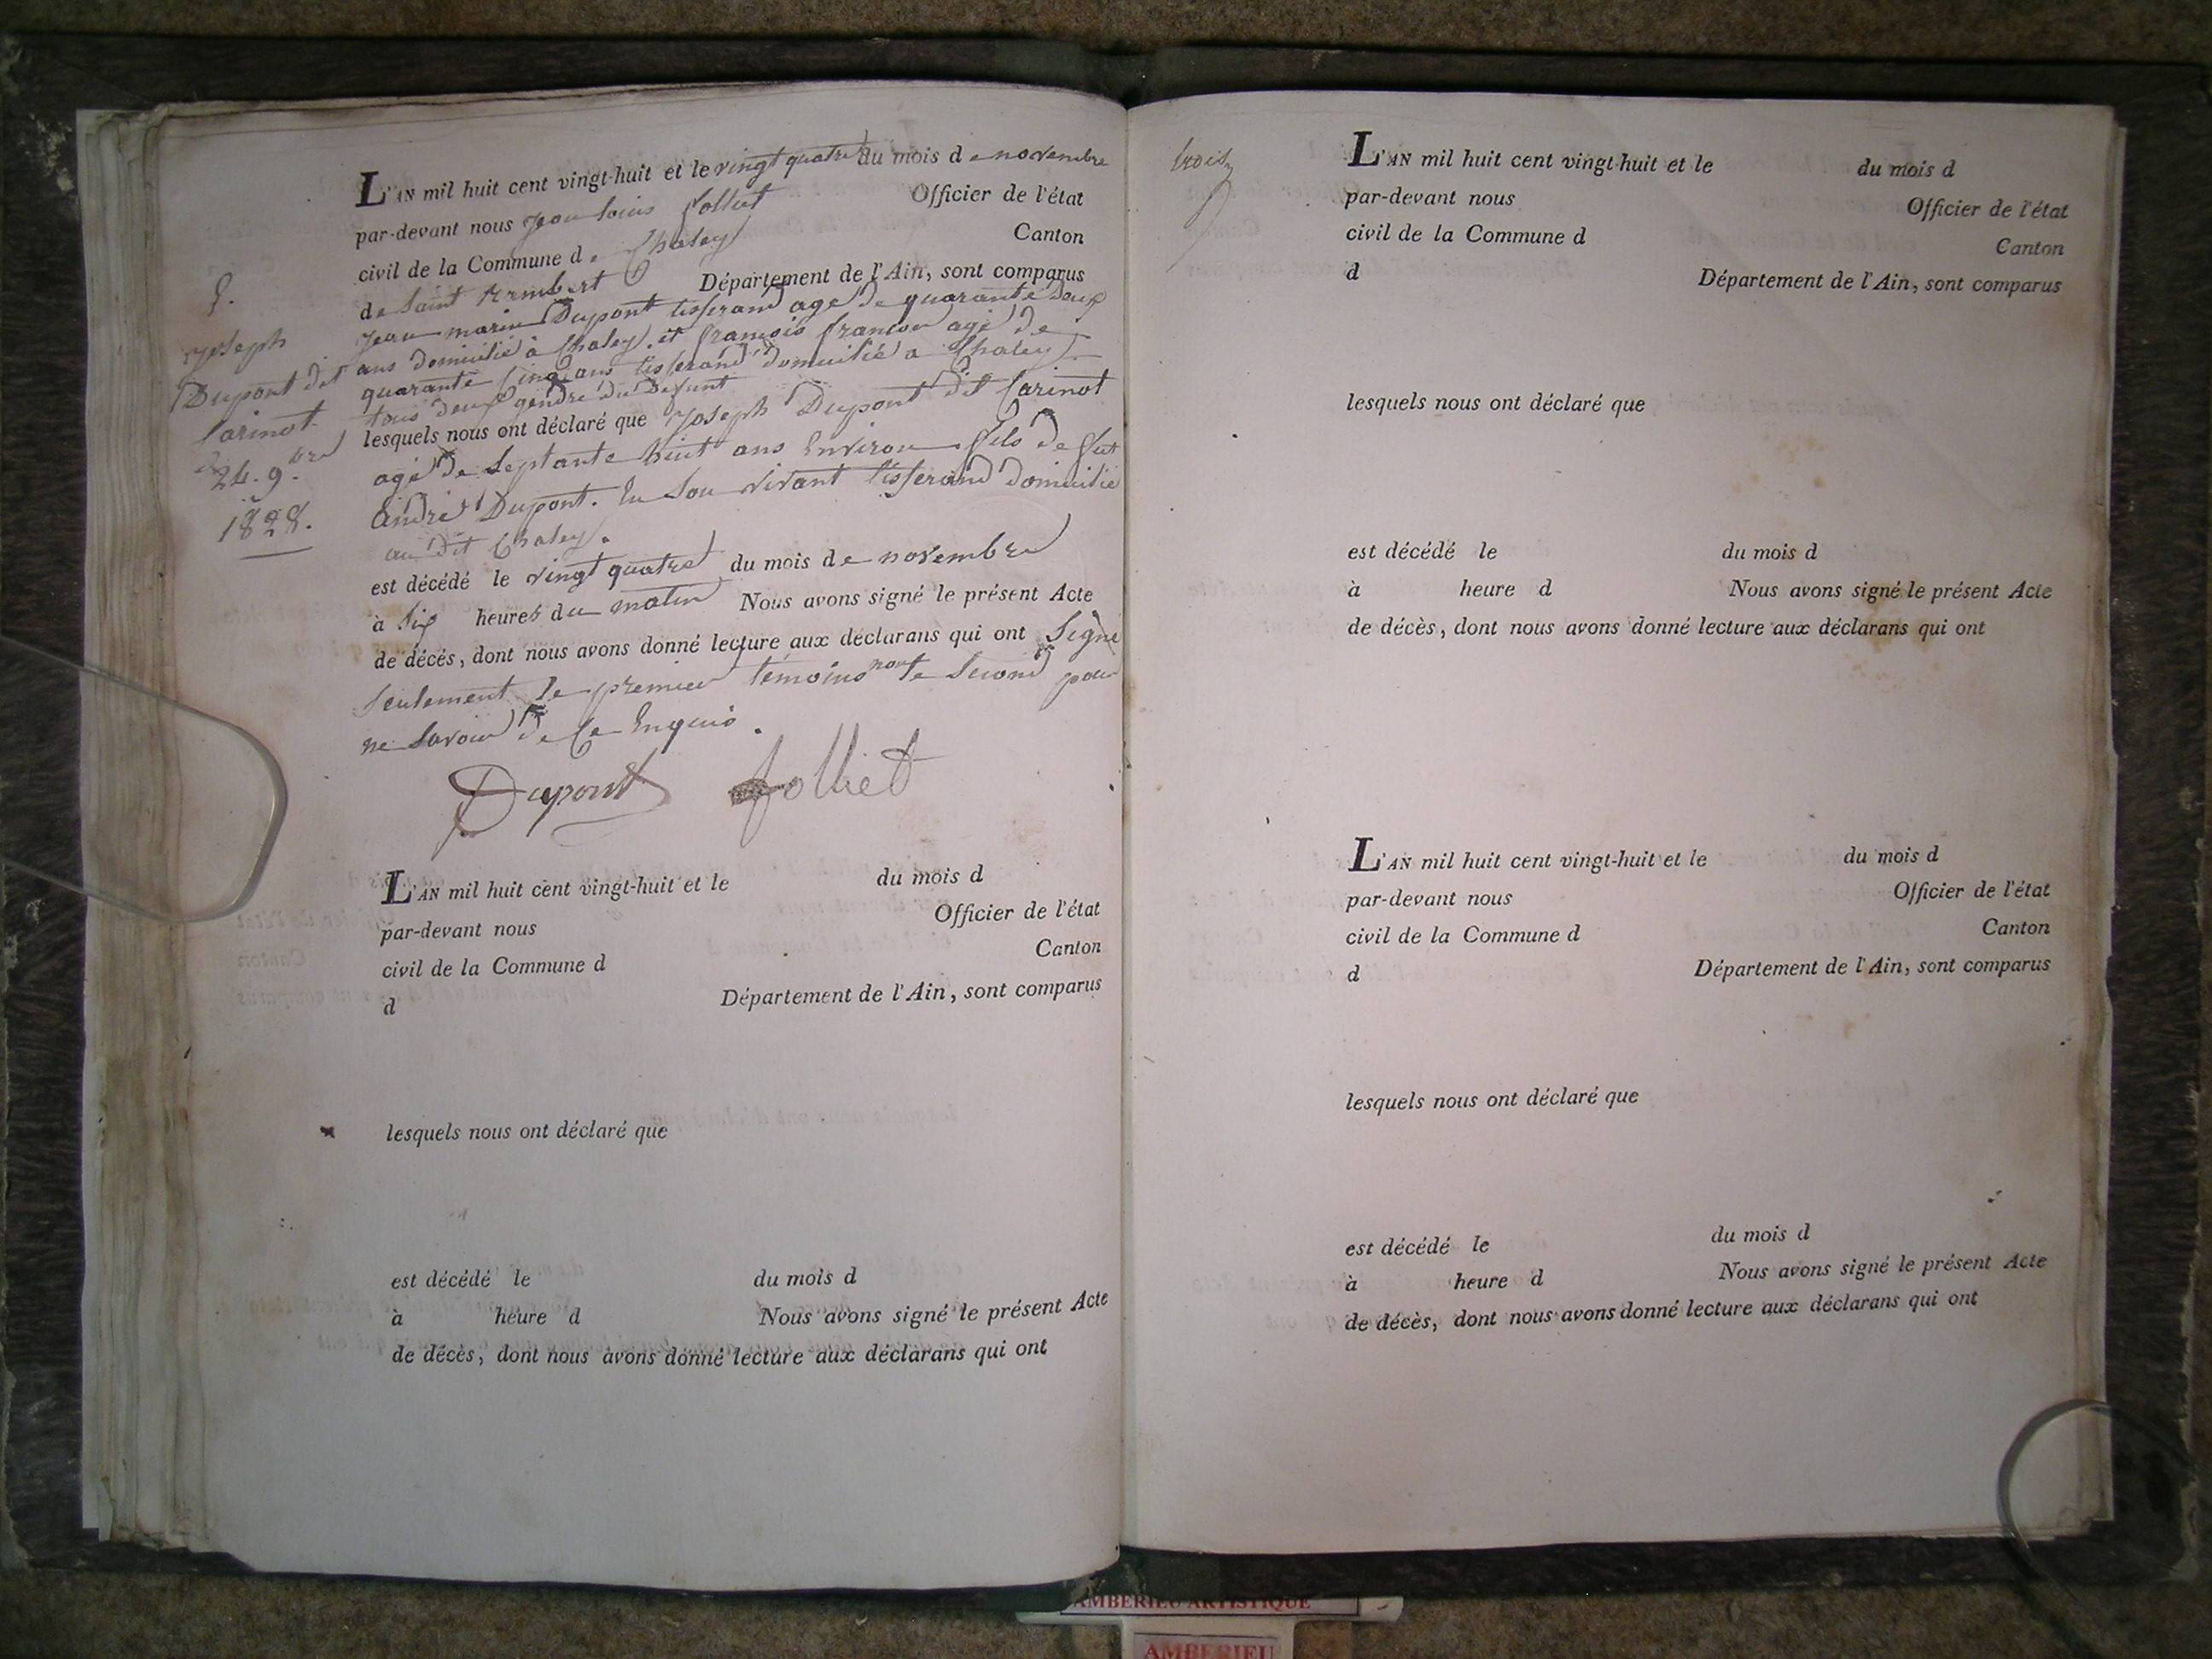 L'AN mil huit cent vingt-huit et le vingt quatre du mois de novembre
par-devant nous jean louis folliet Officier de l'état
civil de la Commune de Chaley Canton
de Saint Rembert Département de l'Ain, sont comparus
Jean marie Dupont tisserand agé de quarante deux
ans domicilié à Chaley. et françois francon agé de
quarante cinq ans tisserand domicilié a Chaley
tous deux gendre du defunt
lesquels nous ont déclaré que joseph Dupont dit Carinot
agé de septante huit ans Environ fils de fut
André Dupont. En son vivant tisserand domicilié
au dit Chaley.
est décédé le vingt quatre du mois de novembre
à six heures du matin Nous avons signé le présent Acte
de décès, dont nous avons donné lecture aux déclarans qui ont Signé
seulement le premier témoins non le second pour
ne savoir de ce Enquis.
Dupont folliet
8.
joseph
Dupont dit
Carinot
24. 9.bre
1828.
L'AN mil huit cent vingt-huit et le du mois d
par-devant nous Officier de l'état
civil de la Commune d Canton
d Département de l'Ain, sont comparus
lesquels nous ont déclaré que
est décédé le du mois d
à heure d Nous avons signé le présent Acte
de décès, dont nous avons donné lecture aux déclarans qui ont
trois
L'AN mil huit cent vingt-huit et le du mois d
par-devant nous Officier de l'état
civil de la Commune d Canton
d Département de l'Ain, sont comparus
lesquels nous ont déclaré que
est décédé le du mois d
à heure d Nous avons signé le présent Acte
de décès, dont nous avons donné lecture aux déclarans qui ont
L'AN mil huit cent vingt-huit et le du mois d
par-devant nous Officier de l'état
civil de la Commune d Canton
d Département de l'Ain, sont comparus
lesquels nous ont déclaré que
est décédé le du mois d
à heure d Nous avons signé le présent Acte
de décès, dont nous avons donné lecture aux déclarans qui ont
AMBERIEU ARTISTIQUE
AMBERIEU